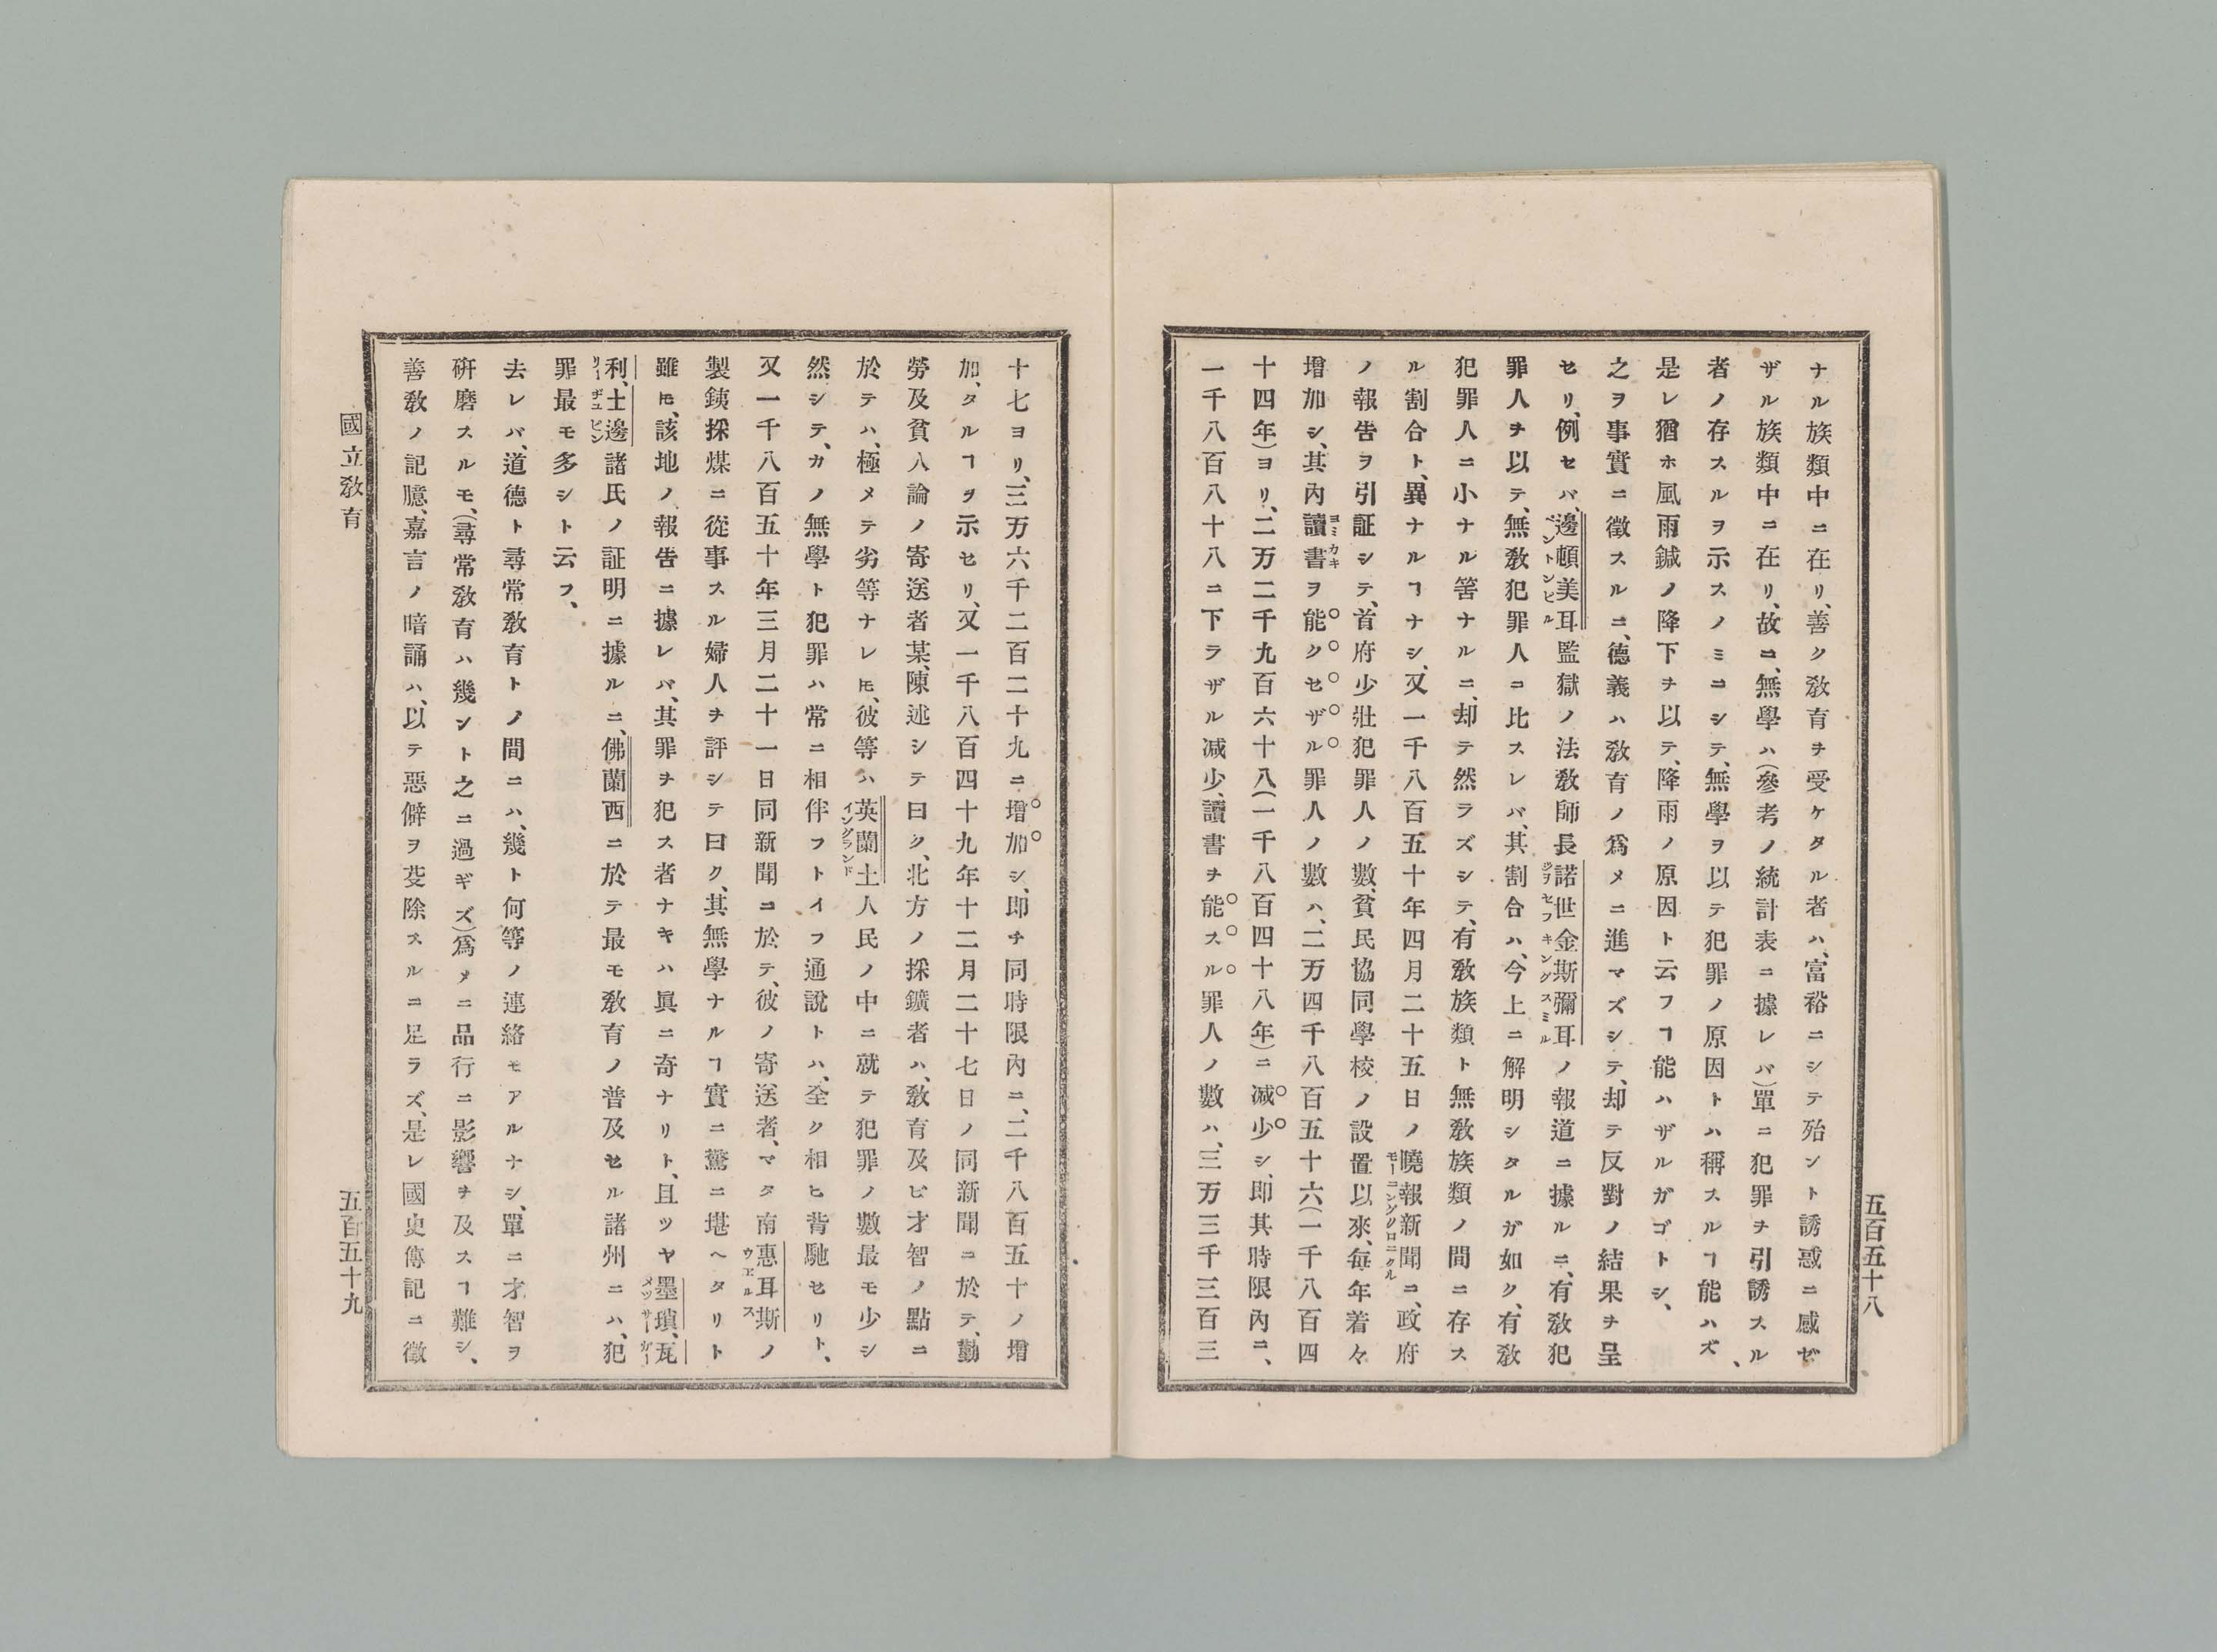 ナル族類中ニ在リ、善ク敎育ヲ受ケタル者ハ、富裕ニシテ殆ント誘惑ニ感ゼ
ザル族類中ニ在リ、故ニ、無學ハ(參考ノ統計表ニ據レバ)單ニ犯罪ヲ引誘スル
者ノ存スルヲ示スノミニシテ、無學ヲ以テ犯罪ノ原因トハ稱スルヿ能ハズ、
是レ猶ホ風雨鍼ノ降下ヲ以テ、降雨ノ原因ト云フヿ能ハザルガゴトシ、
之ヲ事實ニ徵スルニ、德義ハ敎育ノ爲メニ進マズシテ、却テ反對ノ結果ヲ呈
セリ、例セバ、邊頓美耳監獄ノ法敎師長諾世金斯彌耳ノ報道ニ據ルニ、有敎犯
ペントンビル
ジヲセフキングスミル
罪人ヲ以テ、無敎犯罪人ニ比スレバ、其割合ハ、今上ニ解明シタルガ如ク、有敎
犯罪人ニ小ナル筈ナルニ、却テ然ラズシテ、有敎族類ト無敎族類ノ間ニ存ス
ル割合ト、異ナルヿナシ、又一千八百五十年四月二十五日ノ曉報新聞ニ、政府
モーニングクロニクル
ノ報告ヲ引証シテ、首府少壯犯罪人ノ數、貧民協同學校ノ設置以來、每年着々
增加シ、其內讀書ヲ能クセザル罪人ノ數ハ、二万四千八百五十六(一千八百四
ヨミカキ
十四年)ヨリ、二万二千九百六十八(一千八百四十八年)ニ減少シ、即其時限內ニ、
一千八百八十八ニ下ラザル減少、讀書ヲ能スル罪人ノ數ハ、三万三千三百三
五百五十八
十七ヨリ、三万六千二百二十九ニ增加シ、即チ同時限內ニ、二千八百五十ノ增
加、タルヿヲ示セリ、又一千八百四十九年十二月二十七日ノ同新聞ニ於テ、勤
勞及貧人論ノ寄送者某、陳述シテ曰ク、北方ノ採鑛者ハ、敎育及ビ才智ノ點ニ
於テハ、極メテ劣等ナレ𪜈、彼等ハ英蘭土人民ノ中ニ就テ犯罪ノ數最モ少シ
イングランド
然シテ、カノ無學ト犯罪ハ常ニ相伴フトイフ通說トハ、全ク相ヒ背馳セリト、
又一千八百五十年三月二十一日同新聞ニ於テ、彼ノ寄送者、マタ南惠耳斯ノ
ウエルス
製銕採煤ニ從事スル婦人ヲ評シテ曰ク、其無學ナルヿ實ニ驚ニ堪ヘタリト
雖𪜈、該地ノ報告ニ據レバ、其罪ヲ犯ス者ナキハ眞ニ奇ナリト、且ツヤ墨瑣、瓦
メツサーガー
利、士邊諸氏ノ証明ニ據ルニ、佛蘭西ニ於テ最モ敎育ノ普及セル諸州ニハ、犯
リーヂユピン
罪最モ多シト云フ、
去レバ、道德ト尋常敎育トノ間ニハ、幾ト何等ノ連絡モアルナシ、單ニ才智ヲ
硏磨スルモ、(尋常敎育ハ幾シト之ニ過ギズ)爲メニ品行ニ影響ヲ及スヿ難シ、
善敎ノ記臆、嘉言ノ暗誦ハ、以テ惡僻ヲ芟除スルニ足ラズ、是レ國史傳記ニ徵
國立敎育
五百五十九